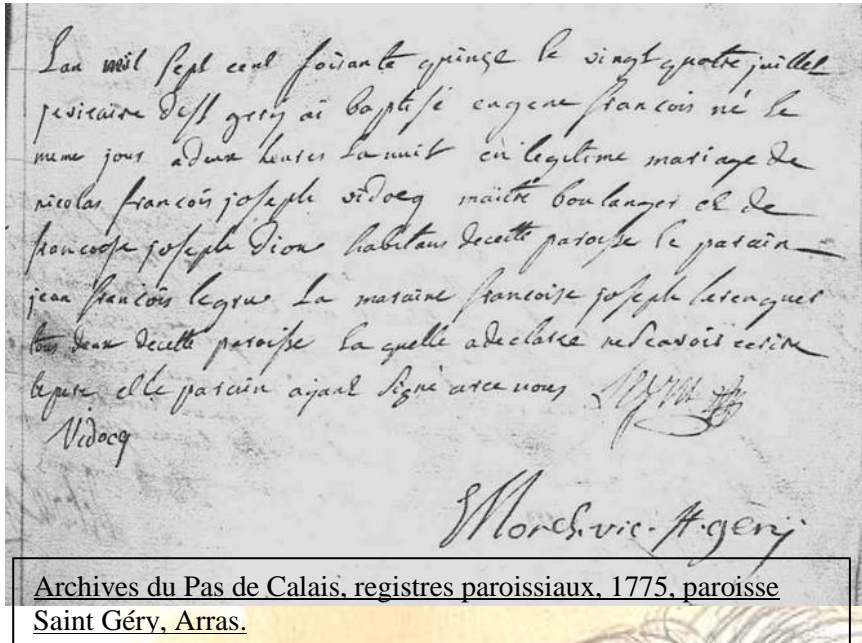 Lan mil sept cent soisante quinze le vingt quatre juillet
je vicaire de st gery ai baptisé eugene francois né le
meme jour a deux heures la nuit en legitime mariage de
nicolas francois joseph vidocq maitre boulanger et de
francoise joseph dion habitans de cette paroisse le parain
jean francois legrue la maraine francoise joseph
tous deux de cette paroisse la quelle a declaree ne scavoir ecrire
le pere et le parain ayant signé avec nous
Vidocq
vic. st. gery
Archives du Pas de Calais, registres paroissiaux, 1775, paroisse
Saint Géry, Arras.